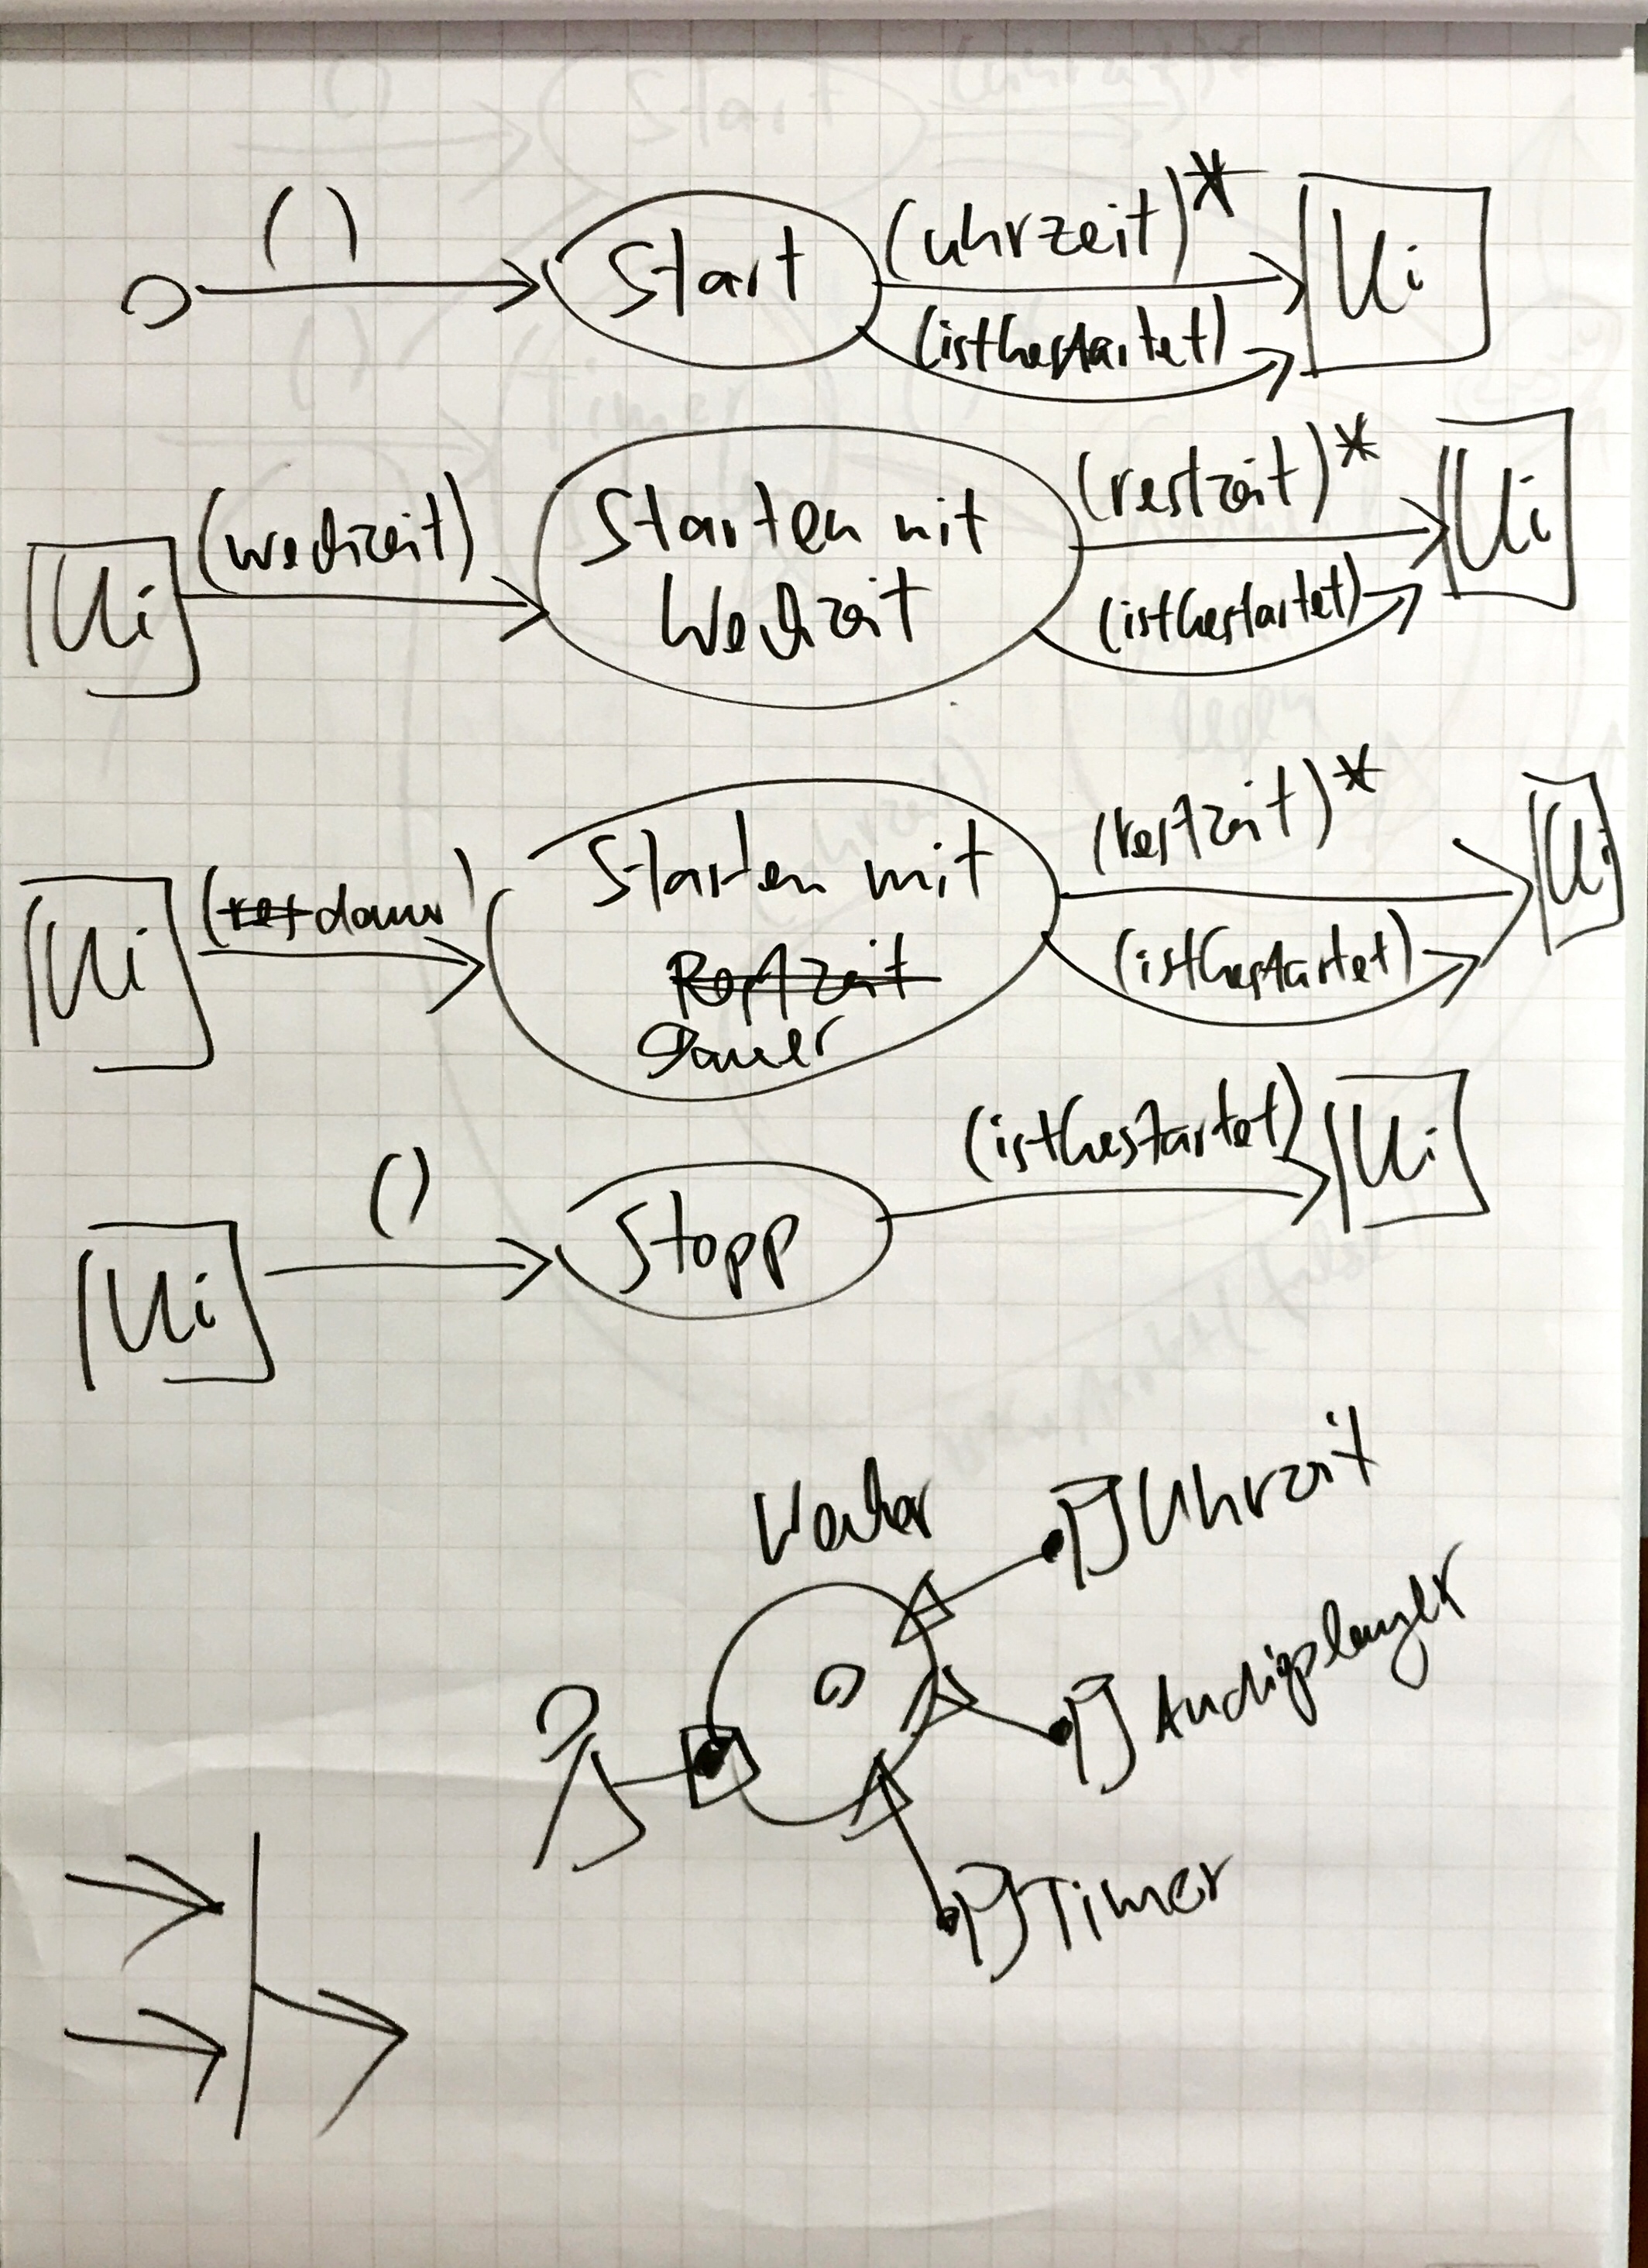 () Start (uhrzeit)* Ui
(istGestartet)
Ui (weckzeit) Starten mit (restzeit)* Ui
Weckzeit (istGestartet)
Ui (dauer) Starten mit (restzeit)* Ui
Restzeit (istGestartet)
Dauer
Ui () Stopp (istGestartet) Ui
Wecker
Uhrzeit
Audioplayer
Timer